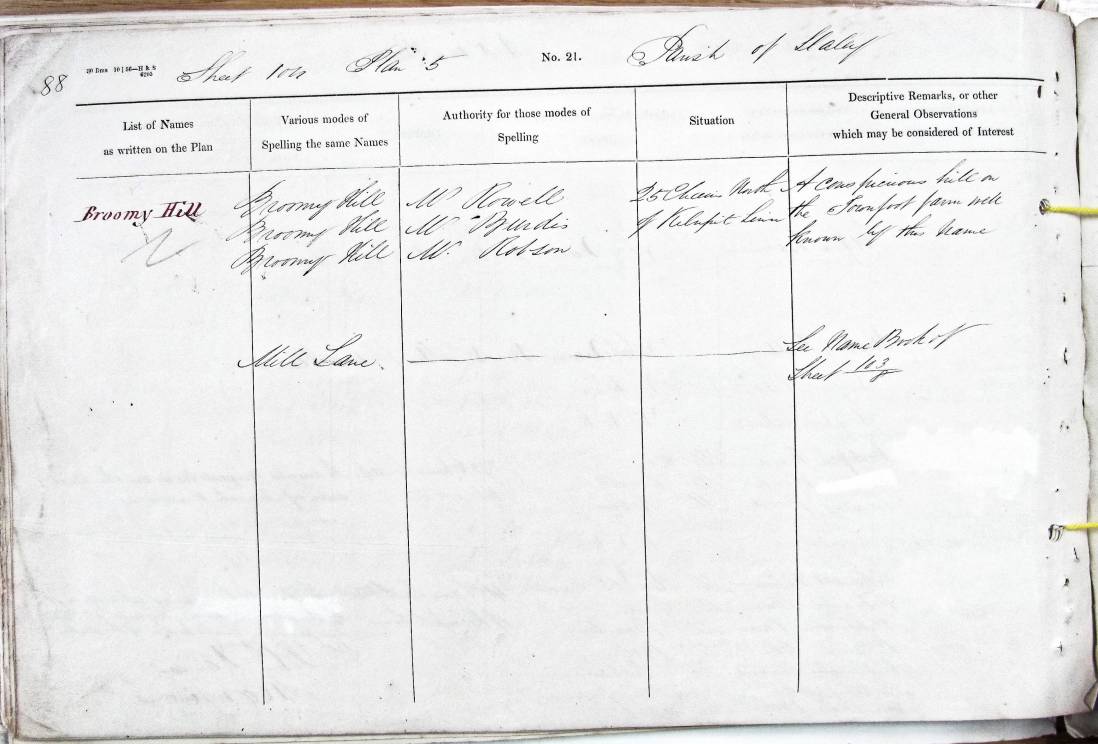 88
Sheet 104 Plan 5 No. 21. Parish of Slaley
List of Names
as written on the Plan
Various modes of
Spelling the same Names
Authority for those modes of
Spelling
Situation
Descriptive Remarks, or other
General Observations
which may be considered of Interest
Broomy Hill
Broomy Hill
Broomy Hill
Broomy Hill
Mr Rowell
Mr Burdis
Mr Robson
25 Chains North
of Kilnpit
A conspicuous hill on
the Townfoot farm well
known by this name
Mill Lane
See Name Book of
Sheet 103/8